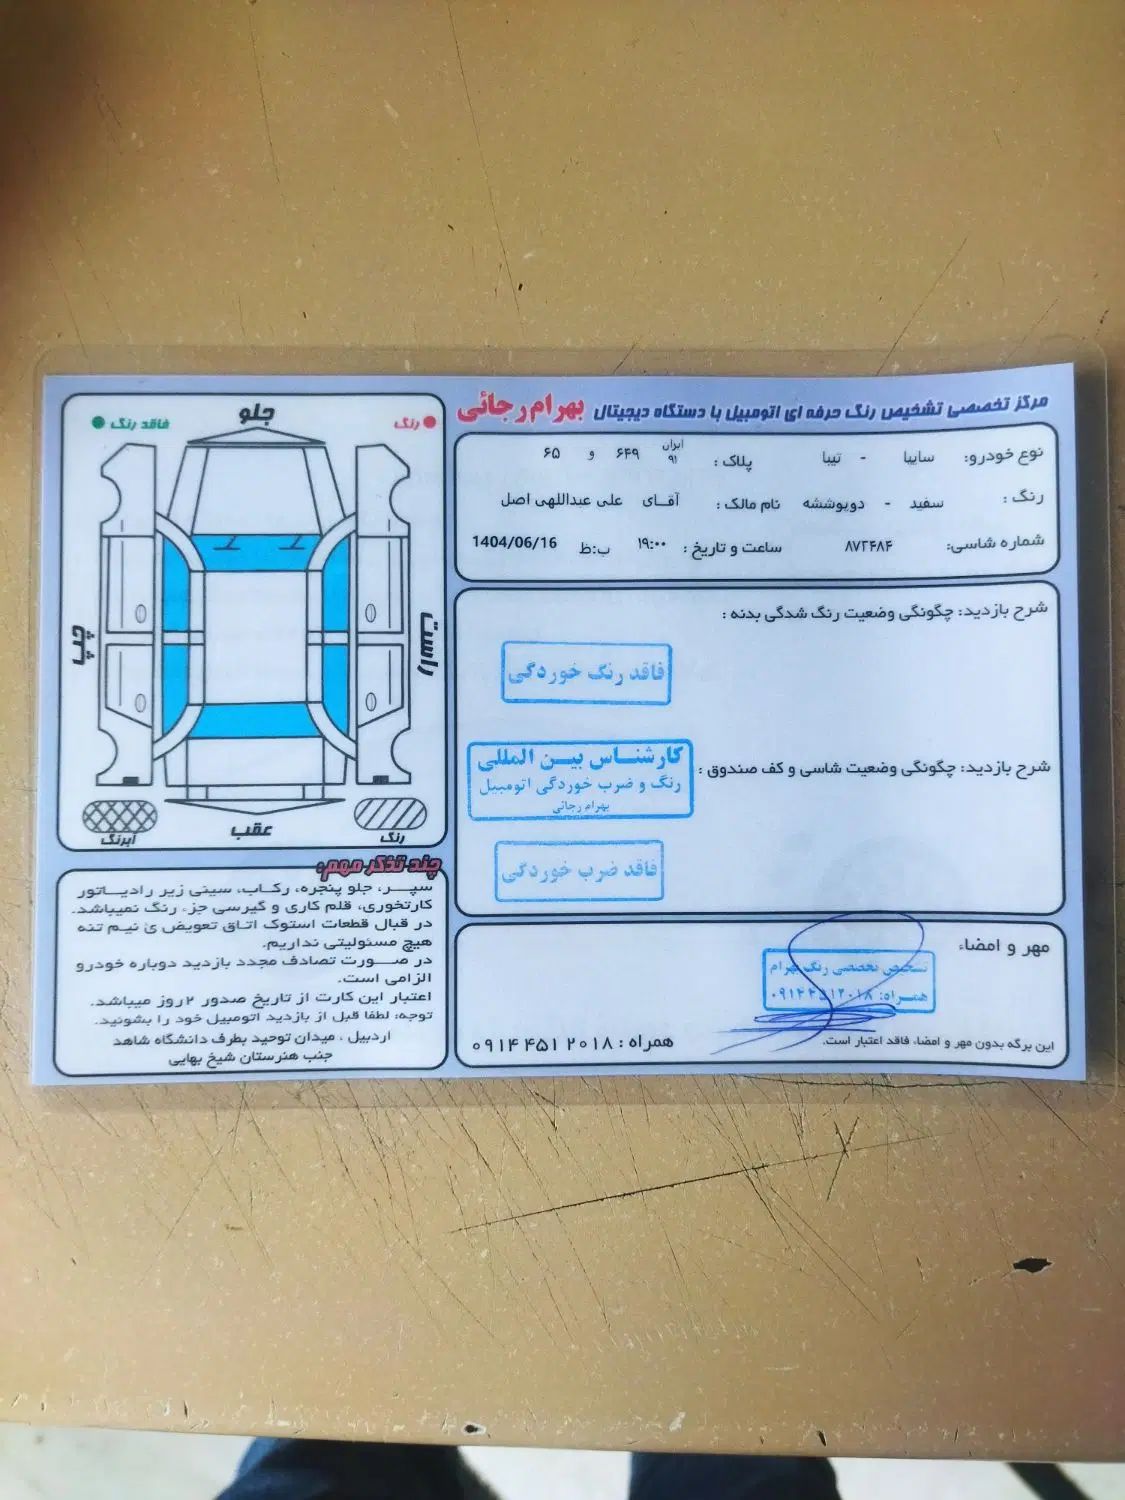 مرکز تخصصی تشخیص رنگ حرفه ای اتومبیل با دستگاه دیجیتال بهرام رجائی
نوع خودرو: سایپا - تیبا پلاک: ایران ۹۱ ۶۴۹ و ۶۵
رنگ: سفید - دوپوششه نام مالک: آقـای علی عبداللهی اصل
شماره شاسی: ۸۷۳۴۸۴ ساعت و تاریخ: ۱۹:۰۰ ب:ظ 1404/06/16
شرح بازدید: چگونگی وضعیت رنگ شدگی بدنه:
فاقد رنگ خوردگی
شرح بازدید: چگونگی وضعیت شاسی و کف صندوق:
کارشناس بین المللی
رنگ و ضرب خوردگی اتومبیل
بهرام رجائی
فاقد ضرب خوردگی
مهر و امضاء
تشخیص تخصصی رنگ بهرام
همراه: ۰۹۱۴۴۵۱۲۰۱۸
این برگه بدون مهر و امضاء فاقد اعتبار است.
همراه: ۰۹۱۴ ۴۵۱ ۲۰۱۸
رنگ
فاقد رنگ
جلو
راست
چپ
عقب
رنگ
آبرنگ
چند تذکر مهم:
سپر، جلو پنجره، رکاب، سینی زیر رادیاتور
کارتخوری، قلم کاری و گیرسی جزء رنگ نمیباشد.
در قبال قطعات استوک اتاق تعویض ی نیم تنه
هیچ مسئولیتی نداریم.
در صورت تصادف مجدد بازدید دوباره خودرو
الزامی است.
اعتبار این کارت از تاریخ صدور ۲روز میباشد.
توجه: لطفا قبل از بازدید اتومبیل خود را بشوئید.
اردبیل، میدان توحید بطرف دانشگاه شاهد
جنب هنرستان شیخ بهایی